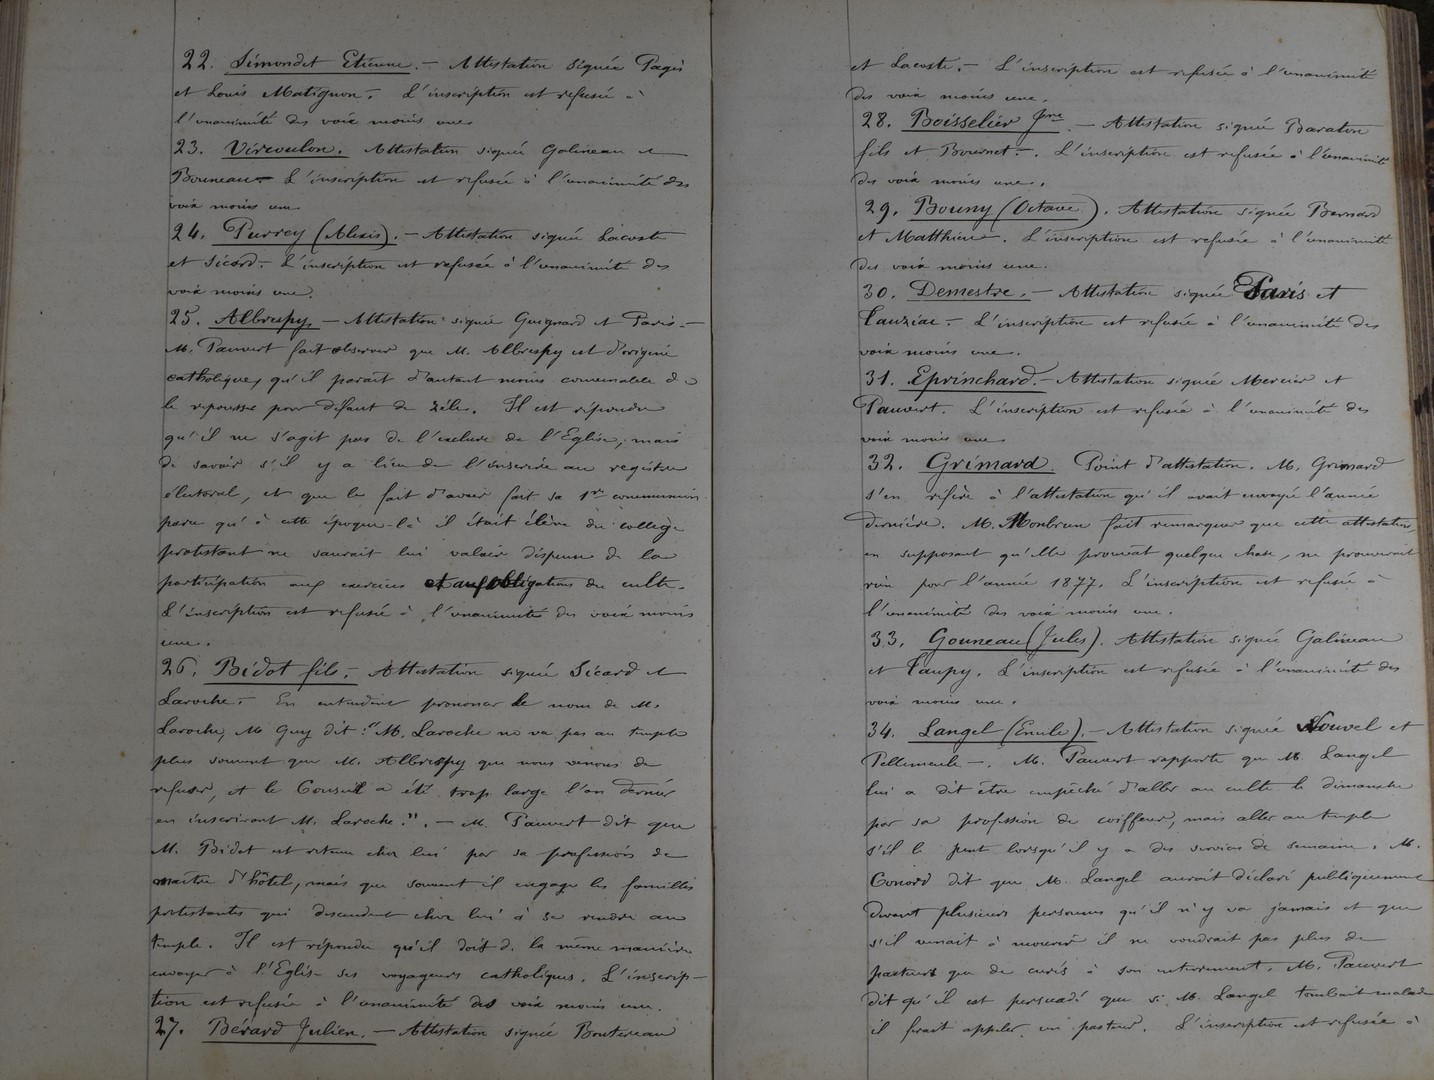 22. Simondet Etienne. — Attestation signée Pagès
et Louis Matignon. L'inscription est refusée à
l'unanimité des voix moins une
23. Viroulon. Attestation signée Galineau et
Bouneau — L'inscription est refusée à l'unanimité des
voix moins une
24. Purrey (Alexis). — Attestation signée Lacoste
et Sicard. — L'inscription est refusée à l'unanimité des
voix moins une.
25. Albrespy — Attestation signée Guignard et Paris. —
M. Pauvert fait observer que M. Albrespy est d'origine
catholique, qu'il paraît d'autant moins convenable de
le repousser pour défaut de zèle. Il est répondu
qu'il ne s'agit pas de l'exclure de l'Eglise, mais
de savoir s'il y a lieu de l'inscrire au registre
électoral, et que le fait d'avoir fait sa 1re communion
parce qu'à cette époque-là il était élève du collège
protestant ne saurait lui valoir dispense de la
participation aux exercices et aux obligations du culte.
L'inscription est refusée à l'unanimité des voix moins
une.
26. Bidot fils. — Attestation signée Sicard et
Laroche. — En entendant prononcer le nom de M.
Laroche, M. Guy dit : "M. Laroche ne va pas au temple
plus souvent que M. Albrespy que nous venons de
refuser, et le Conseil a été trop large l'an dernier
en inscrivant M. Laroche." — M. Pauvert dit que
M. Bidot est retenu chez lui par sa profession de
maître d'hôtel, mais que souvent il engage les familles
protestantes qui descendent chez lui à se rendre au
temple. Il est répondu qu'il doit de la même manière
envoyer à l'Eglise ses voyageurs catholiques. L'inscrip-
tion est refusée à l'unanimité des voix moins une.
27. Bérard Julien. — Attestation signée Boutereau
et Lacoste. — L'inscription est refusée à l'unanimité
des voix moins une.
28. Boisselier Jne — Attestation signée Baraton
fils et Bournet. — L'inscription est refusée à l'unanimité
des voix moins une.
29. Bouny (Octave). Attestation signée Bernard
et Matthieu. L'inscription est refusée à l'unanimité
des voix moins une.
30. Demestre. — Attestation signée Paris et
Cauziac — L'inscription est refusée à l'unanimité des
voix moins une.
31. Eprinchard. — Attestation signée Mercier et
Pauvert. L'inscription est refusée à l'unanimité des
voix moins une
32. Grimard. Point d'attestation. M. Grimard
s'en réfère à l'attestation qu'il avait envoyée l'année
dernière. M. Monbrun fait remarquer que cette attestation,
en supposant qu'elle prouvât quelque chose, ne prouverait
rien pour l'année 1877. L'inscription est refusée à
l'unanimité des voix moins une.
33. Gouneau (Jules). Attestation signée Galineau
et Taupy. L'inscription est refusée à l'unanimité des
voix moins une.
34. Langel (Emile). — Attestation signée Nouvel et
Pellemeule —. M. Pauvert rapporte que M. Langel
lui a dit être empêché d'aller au culte le dimanche
par sa profession de coiffeur, mais aller au temple
s'il le peut lorsqu'il y a des services de semaine. M.
Conord dit que M. Langel aurait déclaré publiquement
devant plusieurs personnes qu'il n'y va jamais et que
s'il venait à mourir il ne voudrait pas plus de
pasteurs que de curés à son enterrement. M. Pauvert
dit qu'il est persuadé que si M. Langel tombait malade
il ferait appeler un pasteur. L'inscription est refusée à